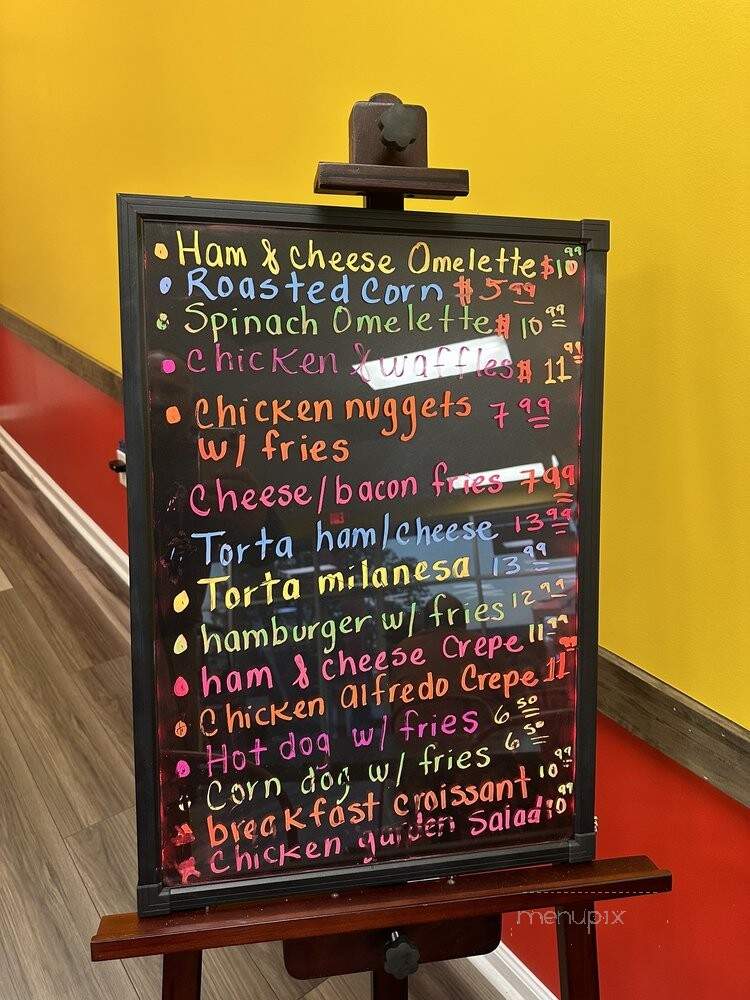 Ham & cheese Omelette $10 99
Roasted Corn $5 99
Spinach Omelette $10 99
Chicken & waffles $11 99
Chicken nuggets 7 99
w/ fries
Cheese/bacon fries 7 99
Torta ham/cheese 13 99
Torta milanesa 13 99
hamburger w/ fries 12 99
ham & cheese Crepe 11 99
Chicken alfredo Crepe 11
Hot dog w/ fries 6 50
Corn dog w/ fries 6 50
breakfast croissant 10 99
Chicken garden Salad 10 99
menupix